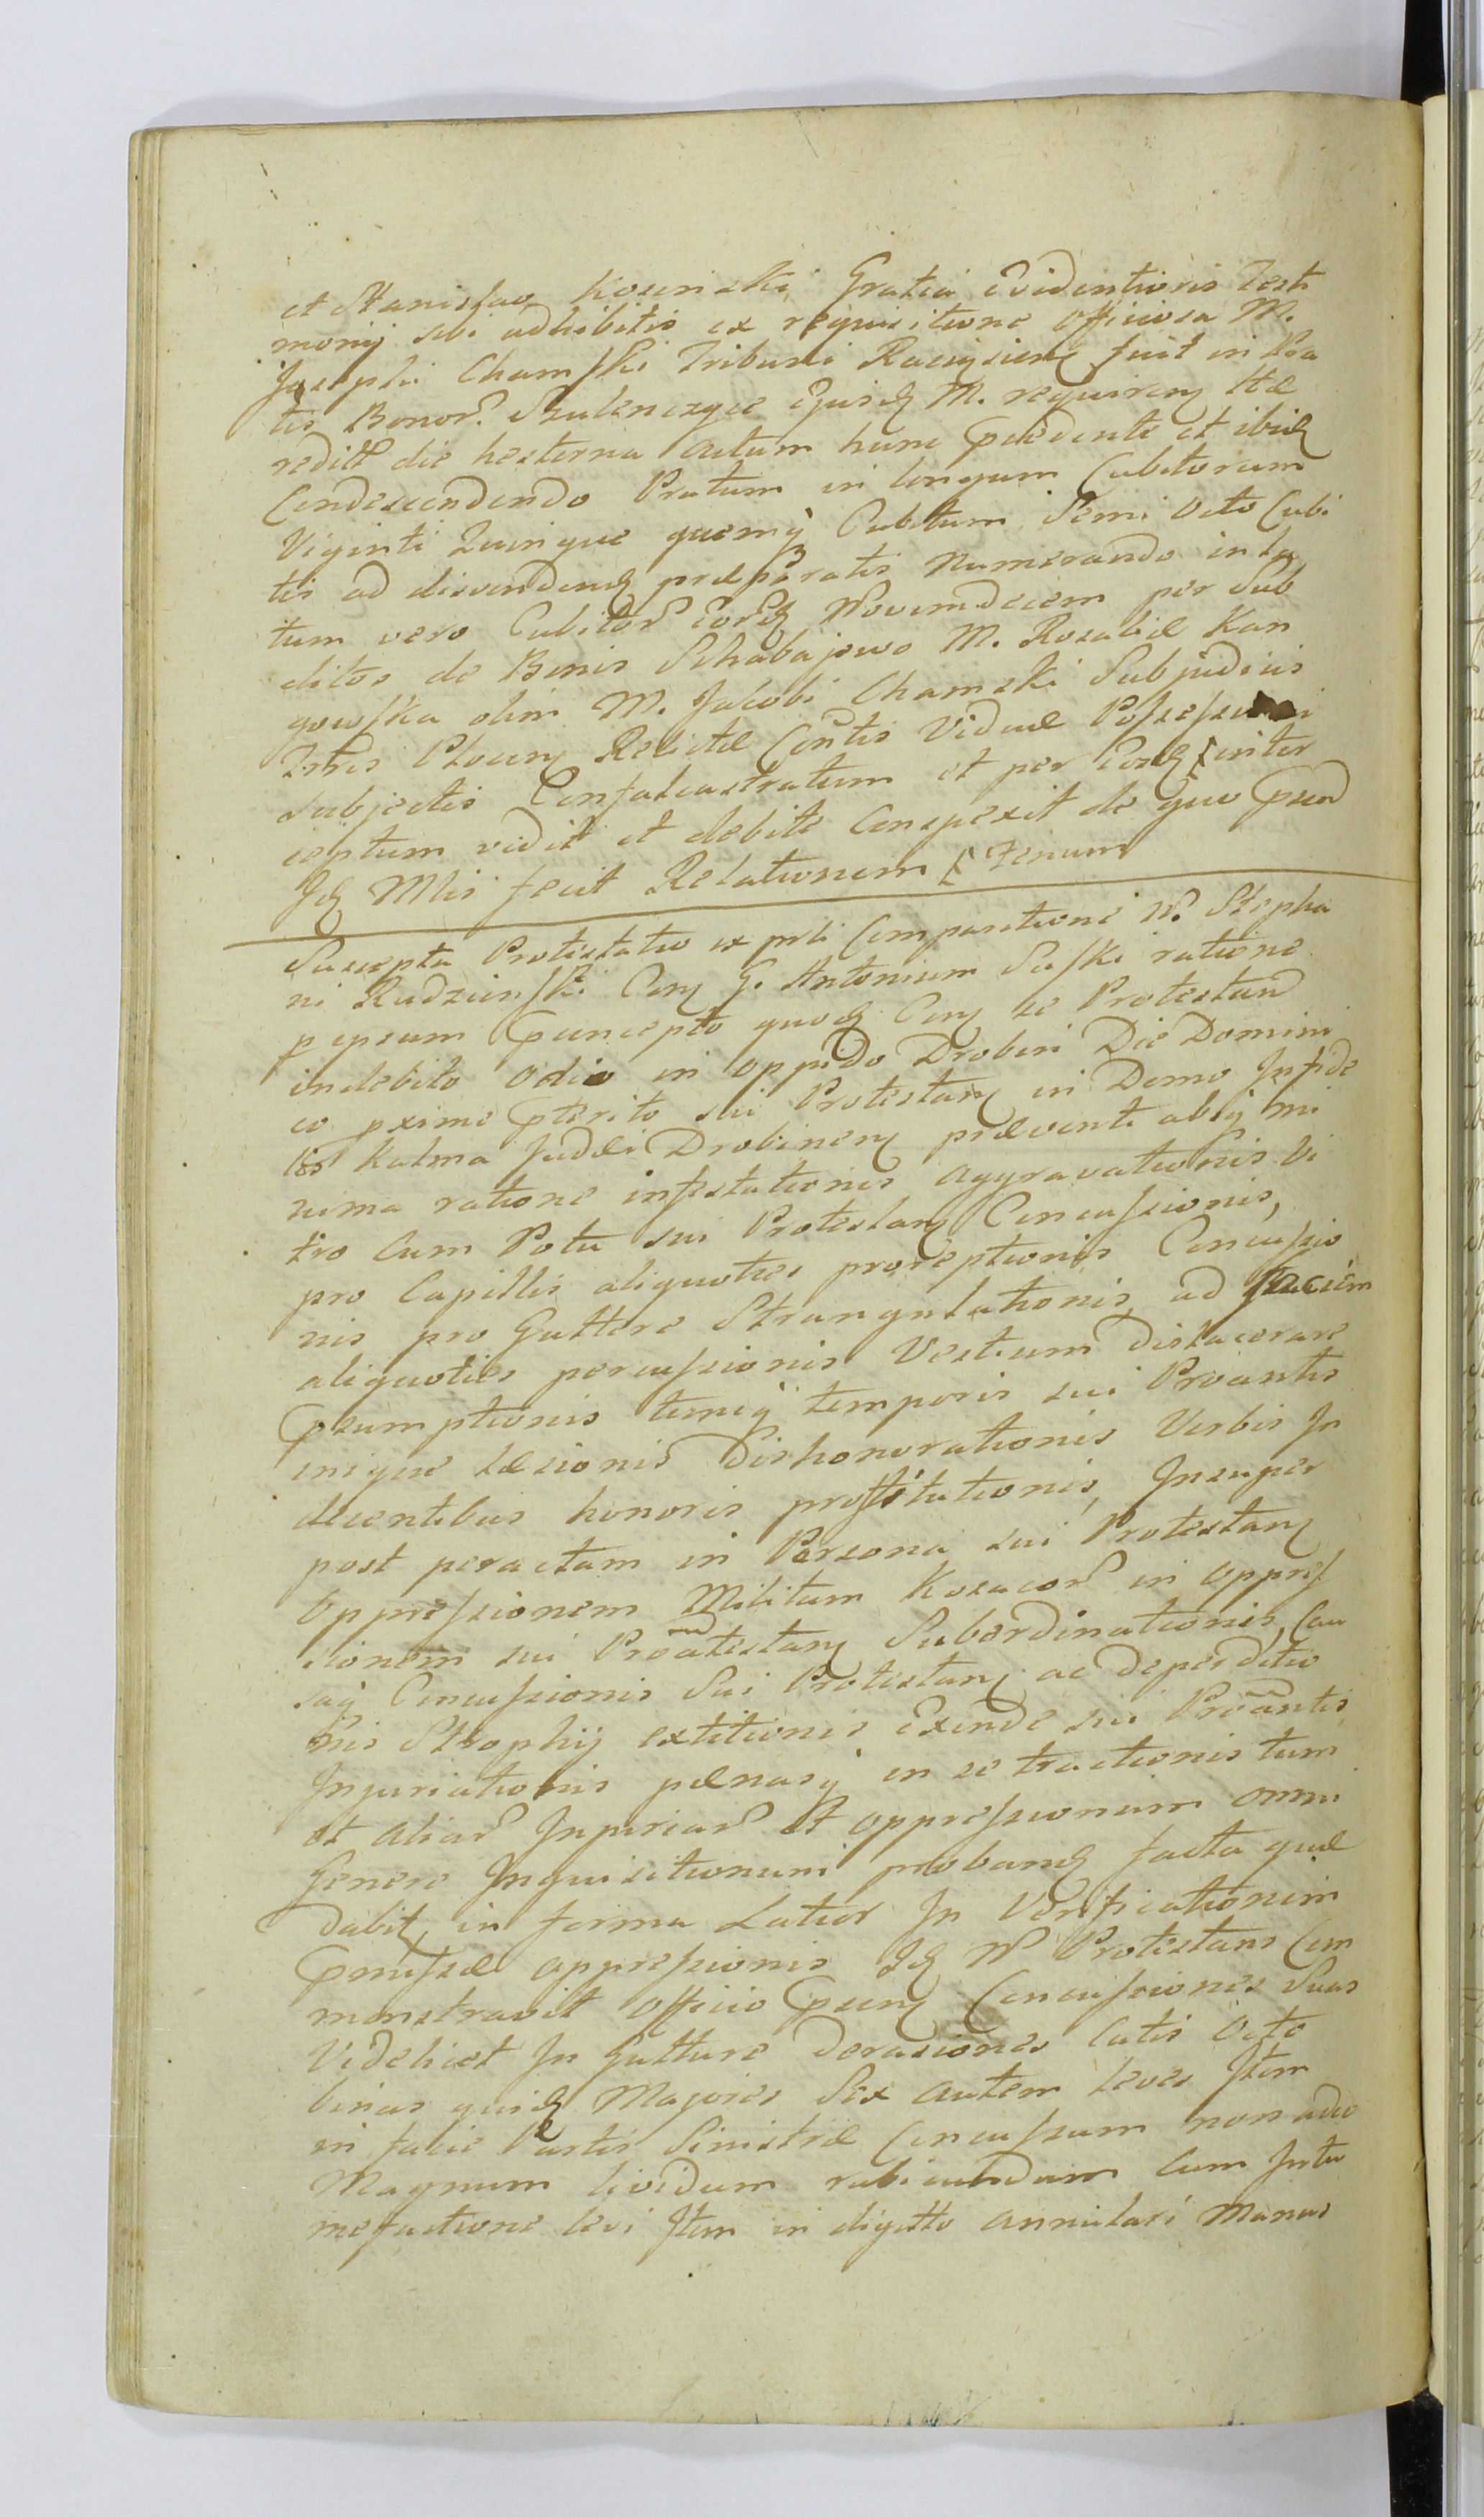 et Stanislao Kosinski Gratia Evidentioris Testi
monij sibi adhibitis ex requisitione Officiosa M.
Josephi Chamski Tribuni Raciązien fuit in Pra
tis Bonor. Szulenczyce Ejusd M. requiren Hæ
redit die hesterna Actum hunc Præcedente et ibid
Condescendendo Pratum in longum Cubitorum
Viginti Quinque quemq Cubitum Semi Octo Cubi
tis ad discindend præparatis Numerando in la
tum vero Cubitor Eord Novemdecem per Sub
ditos de Bonis Schabajewo M. Rosaliæ Kan
gowska olim M. Jacobi Chamski Subjudicis
Ttris Plocen Relictæ Contis Viduæ Possessioni
subjectis Confalcastratum et per Eosd inter
ceptum vidit et debite Conspexit de quo Præm
Id Mlis fecit Relationem Fenum
Suscepta Protestatio ex psli Comparitione N. Stepha
ni Rudzinski Con G. Antonium Suski ratione
p ipsum Præconcepto quod Con se Protestan
indebito Odio in Oppido Drobin Die Domini
co pxime Pterito sui Protestan in Domo Infide
lis Kalma Judæi Drobinen prævent absq mi
nima ratione infestationis aggravationis Vi
tro Cum Potu sui Protestan Concussionis,
pro Capillis aliquoties proreptionis Concussio
nis pro Guttere Strangulationis, ad faciem
aliquoties percussionis Vestium dislacerare
Præsumptionis temeq temporis sui Protantis
inique Læsionis Dishonorationis Verbis In
decentibus honoris prostitutionis, Insuper
post peractam in Persona sui Protestan
Oppressionem Militum Kosacor in oppres
sionem sui Protestan Subordinationis, Cau
saq Concussionis Sui Protestan ac deperditio
nis Strophij extitionis Exinde sui Protantis
Injuriationis pænasq in se tractionis tum
et aliar Injuriar et oppressionum omni
Genere Inquisitionum proband facta quæ
dabit, in forma Latior In Verificationem
Præmissæ oppressionis Id N Protestans Com
monstravit Officio Præsen Concussiones Suas
Videlicet In Gutture Derasiones Cutis Octo
binas quid Majores Sex autem leves Item
in facie Partis Sinistræ Concussum non adeo
Magnum lividum rubicundum Cum Intu
mefactione levi Item in digitto annulari Manus